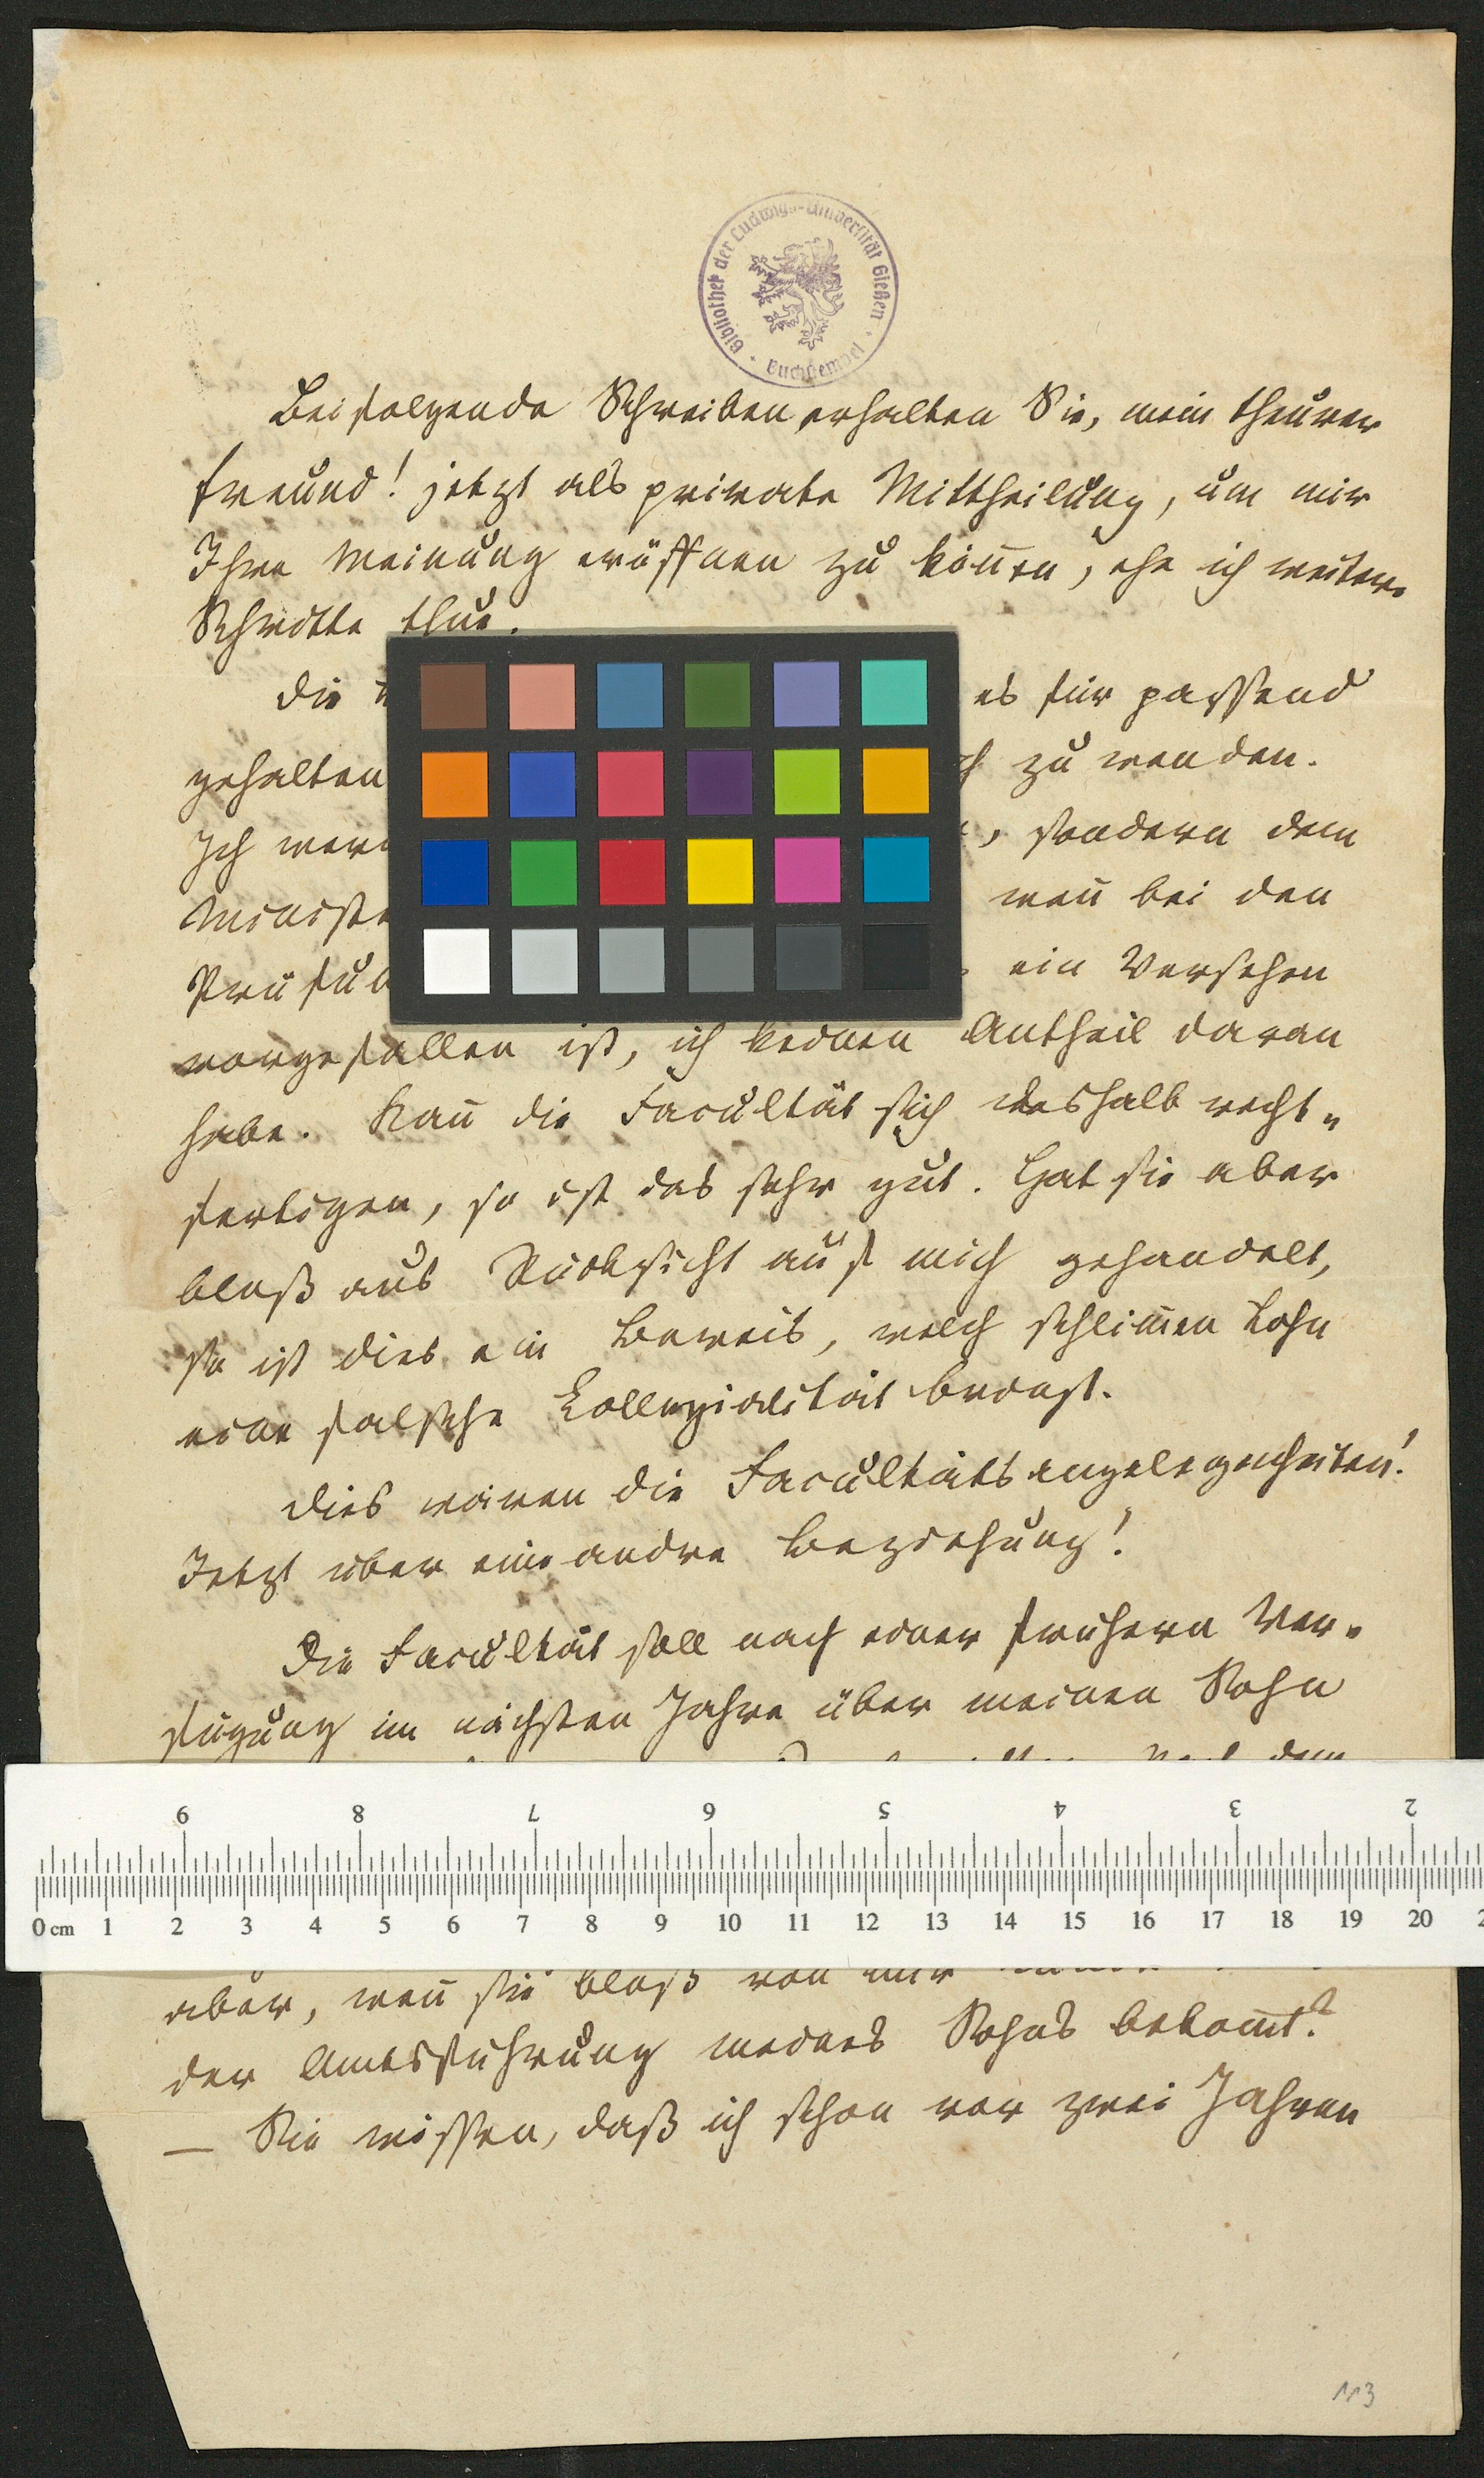 Bibliothek der Ludwigs-Universität Gießen · Buchstempel ·
Beifolgende Schreiben erhalten Sie, mein theurer
Freund! jetzt als private Mittheilung, um mir
Ihre Meinung eröffnen zu könn̄en, ehe ich weitere
Schritte thue.
Die es für passend
gehalten zu wenden.
Ich , sondern dem
wen̄ bei den
ein Versehen
vorgefallen ist, ich keinen Antheil daran
habe. Kan̄ die Facultät sich deshalb recht-
fertigen, so ist das sehr gut. Hat sie aber
bloß aus Rücksicht auf mich gehandelt,
so ist dies ein Beweis, welch schlim̄en Lohn
eine falsche Kollegialität bringt.
Dies wären die Facultätsangelegenheiten!
Jetzt über eine andre Beziehung!
Die Facultät soll nach einer frühern Ver-
fügung im nächsten Jahre über meinen Sohn
dem
6 8 7 6 5 4 3 2
0 cm 1 2 3 4 5 6 7 8 9 10 11 12 13 14 15 16 17 18 19 20
aber, wen̄ sie bloß von mir
der Amtsführung meines Sohns bekom̄t?
— Sie wissen, daß ich schon vor zwei Jahren
113